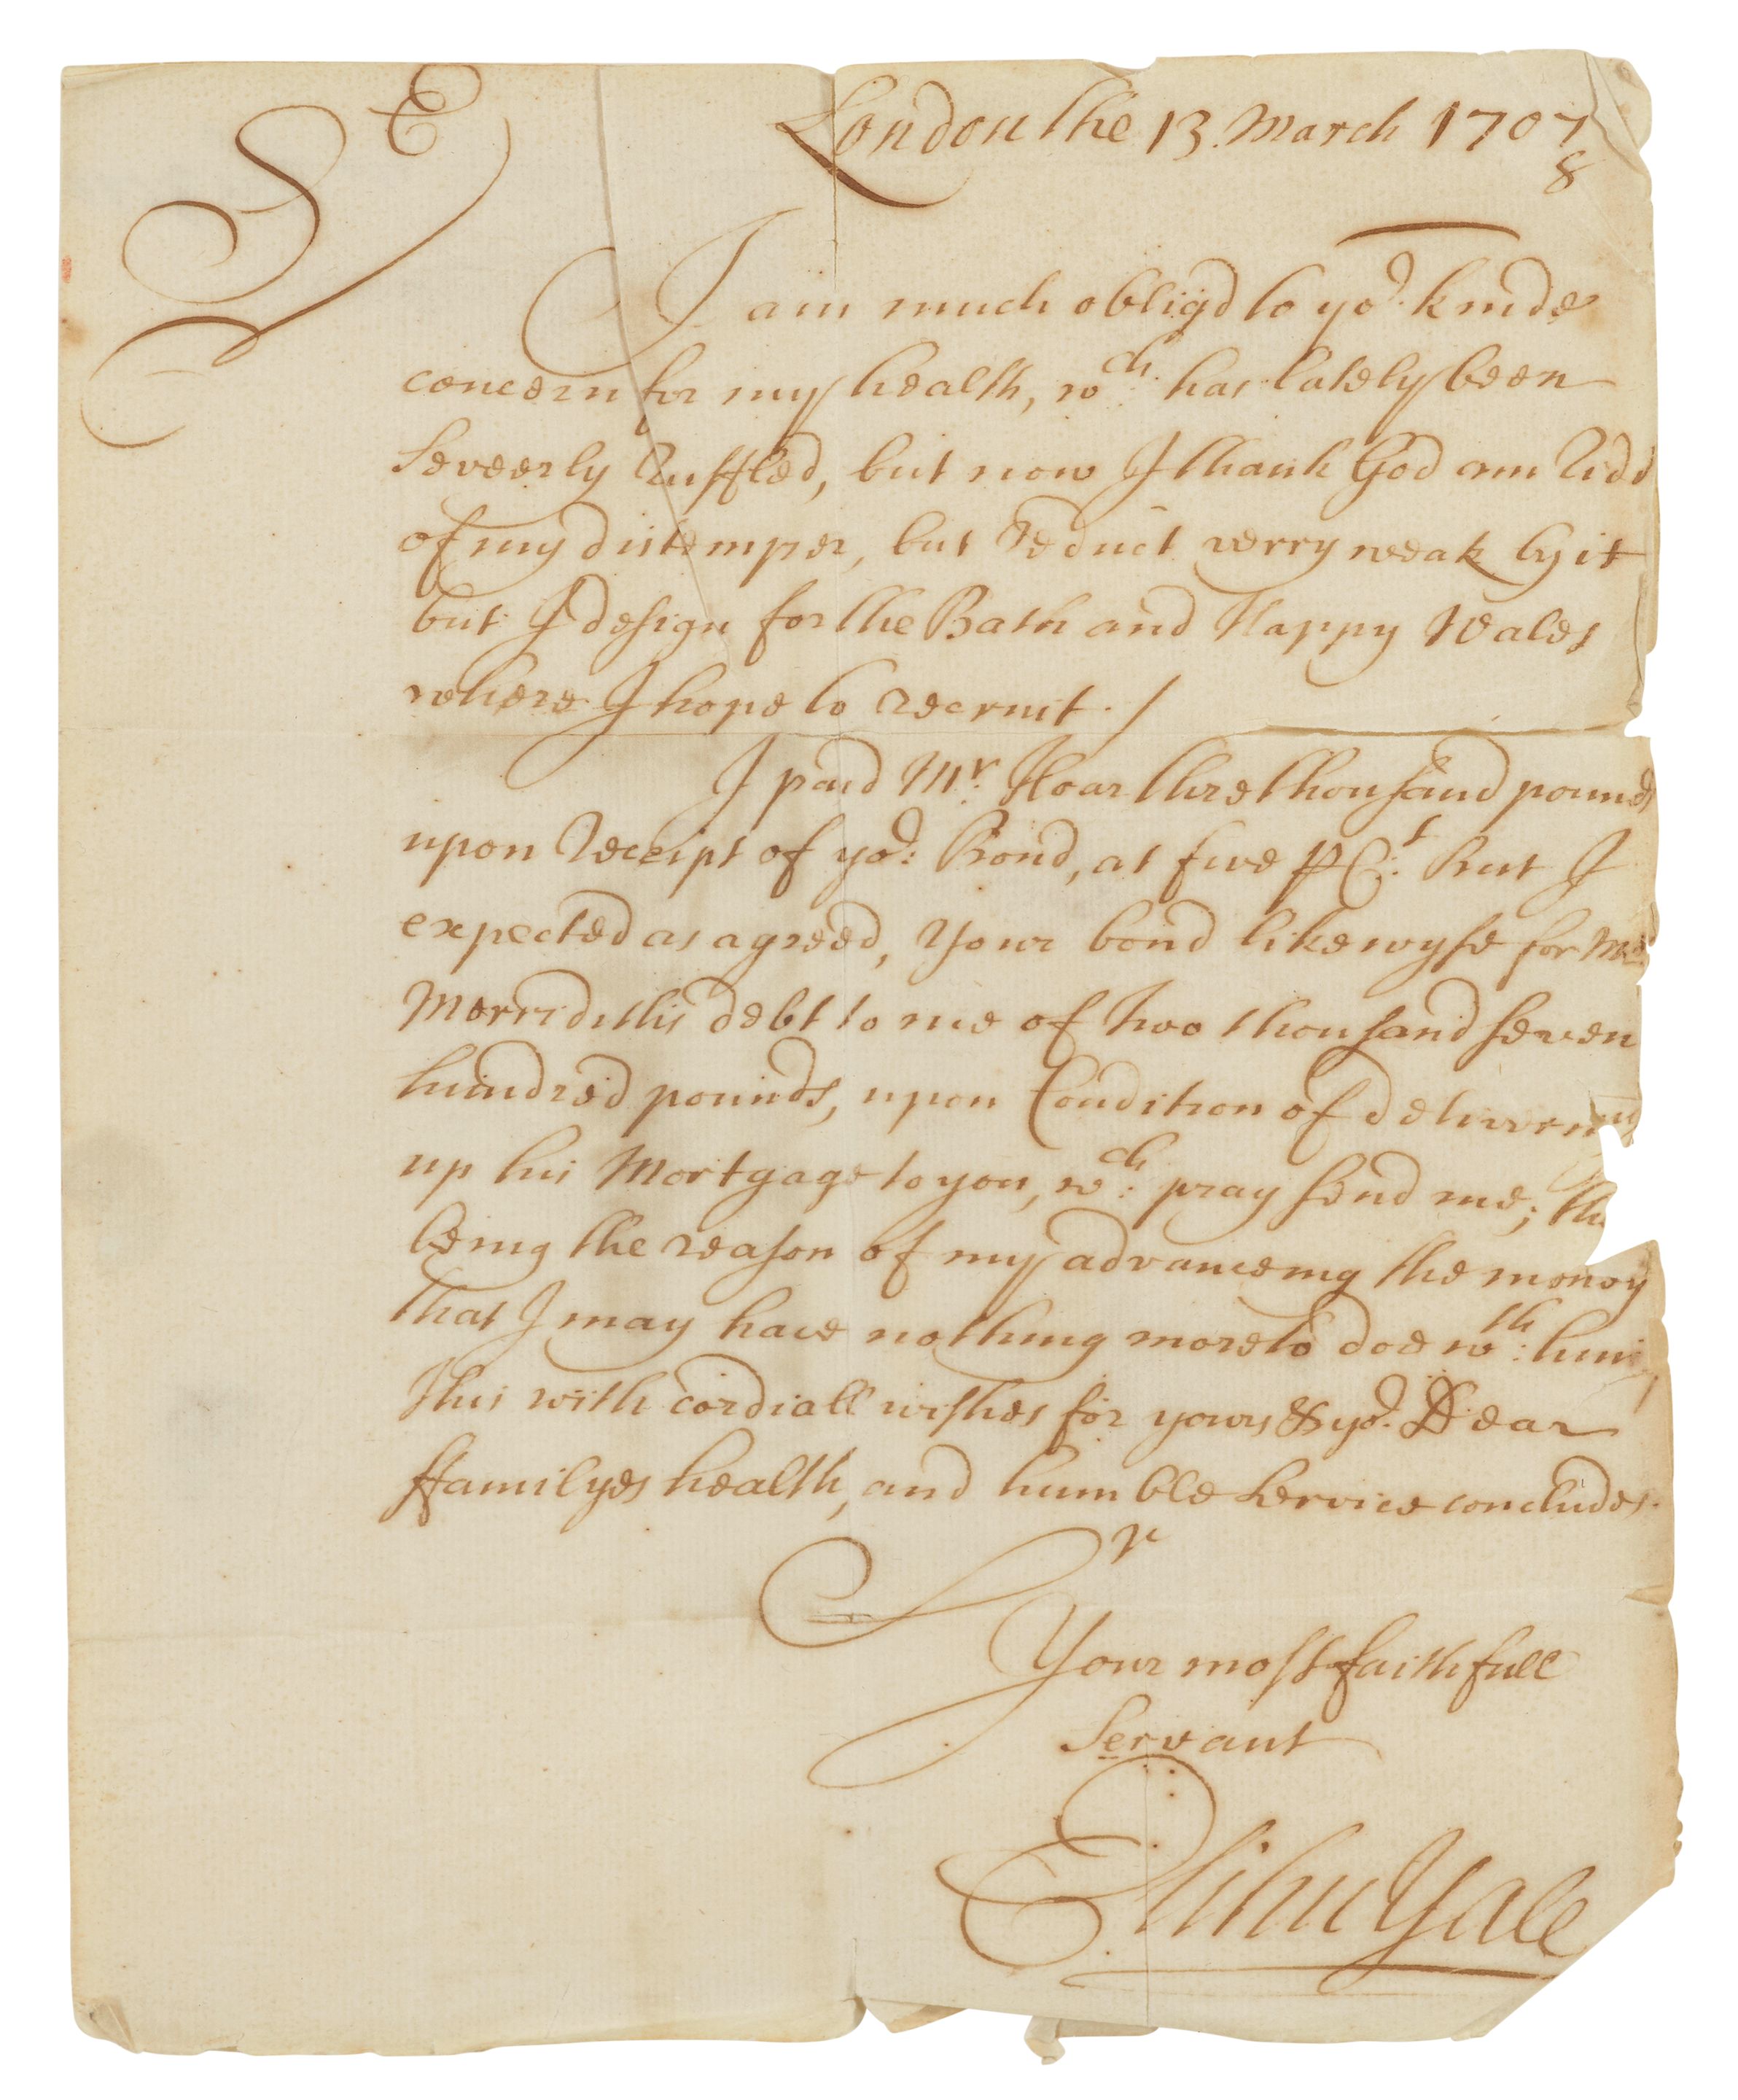 London the 13. March 1707
8
Sr
I am much obligd to yor. kinde
concern for my health, wch: has lately been
severly Ruffled, but now I thank God am Ridd
of my distemper, but Reduct verry weak by it
but I design for the Bath and Happy Wales
where I hope to recruit. /
I paid Mr: Hoar thre thousand pounds
upon Receipt of yor: Bond, at five P Ct: But I
expected as agreed, Your bond likewyse for Mr:
Morridiths debt to me of Two thousand seven
hundred pounds, upon Condition of delivering
up his Mortgage to you, wch: pray send me;
being the reason of my advanceing the money
that I may have nothing more to doe wth: him,
this with cordiall wishes for yours & yor. Dear
ffamilyes health, and humble service concludes.
Sr
Your most faithfull
Servant
Elihu Yale